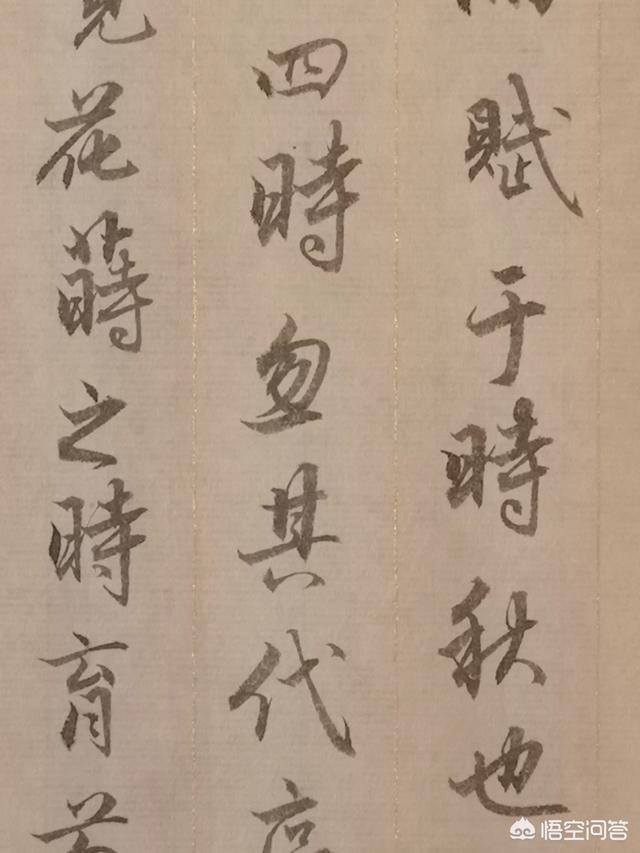 賦于時秋也
四時忽其代
花蒔之時育
悟空问答